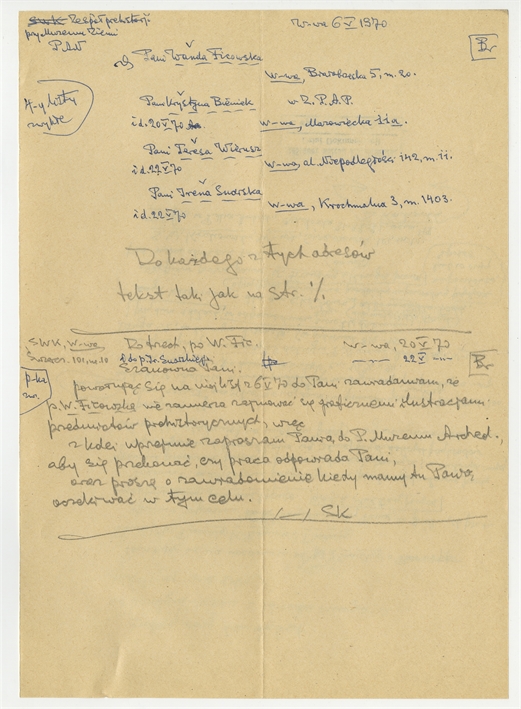 S.W.K. Zespół prehistorj.
przy Muzeum Ziemi
PAN
W-wa 6 V 1970
Br
Pani Wanda Ficowska
W-wa, Browarska 5, m. 20.
4-y listy
zwykłe
Pani Krystyna Bieniek
w Z.P.A.P.
i d. 20 V 70
W-wa, Mazowiecka 11a.
Pani Teresa Wierusz
i d. 22 V 70
W-wa, al. Niepodległości 142, m. 11.
Pani Irena
i d. 22 V 70
W-wa, Krochmalna 3, m. 1403.
Do każdego z tych adresów
tekst taki jak na str. ./.
SWK, W-wa,
101, m. 10
Do trzech, po W. Fic.
W-wa, 20 V 70
22 V
Br
Szanowna Pani.
p-ka
zw.
powołując się na mój list z 6 V 70 do Pani zawiadamiam, że
p. W. Ficowska nie zamierza zajmować się graficznemi ilustracjami
przedmiotów prehistorycznych, więc
z kolei uprzejmie zapraszam Panią do P. Muzeum Archeol.,
aby się przekonać, czy praca odpowiada Pani,
oraz proszę o zawiadomienie kiedy mamy tu Panią
oczekiwać w tym celu.
SK